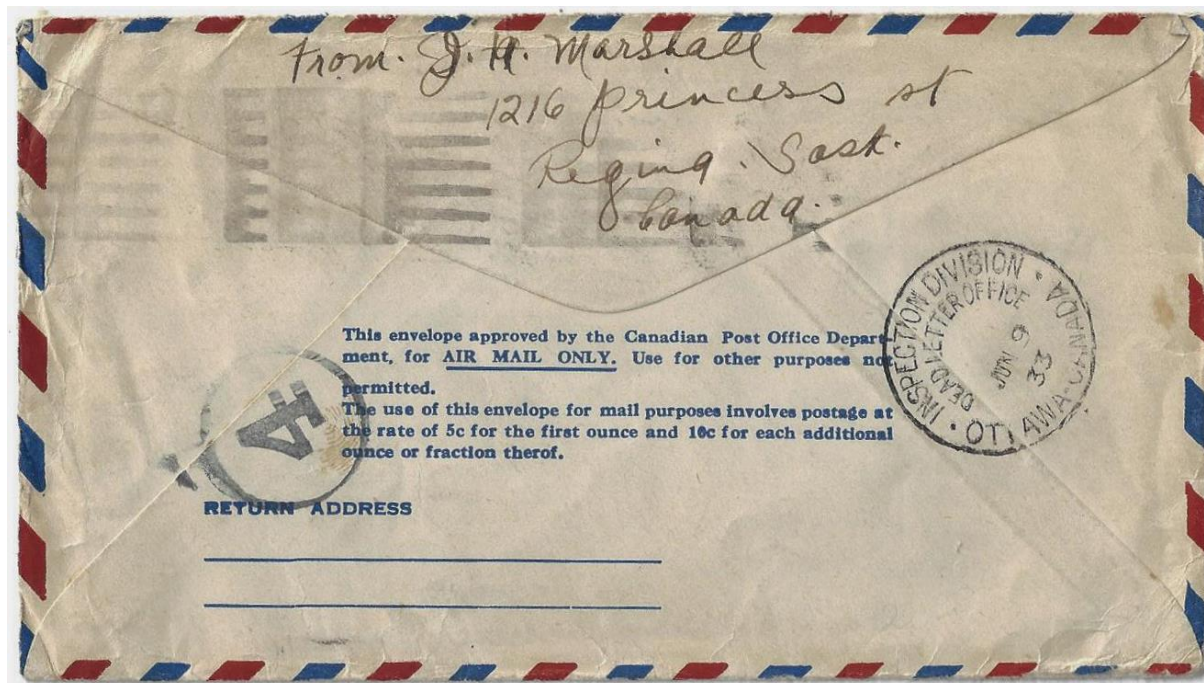 From. J. H. Marshall
1216 Princess st
Regina. Sask.
Canada.
This envelope approved by the Canadian Post Office Depart-
ment, for AIR MAIL ONLY. Use for other purposes not
permitted.
The use of this envelope for mail purposes involves postage at
the rate of 5c for the first ounce and 10c for each additional
ounce or fraction therof.
RETURN ADDRESS
INSPECTION DIVISION
DEAD LETTER OFFICE
JUN 9
33
OTTAWA-CANADA
4